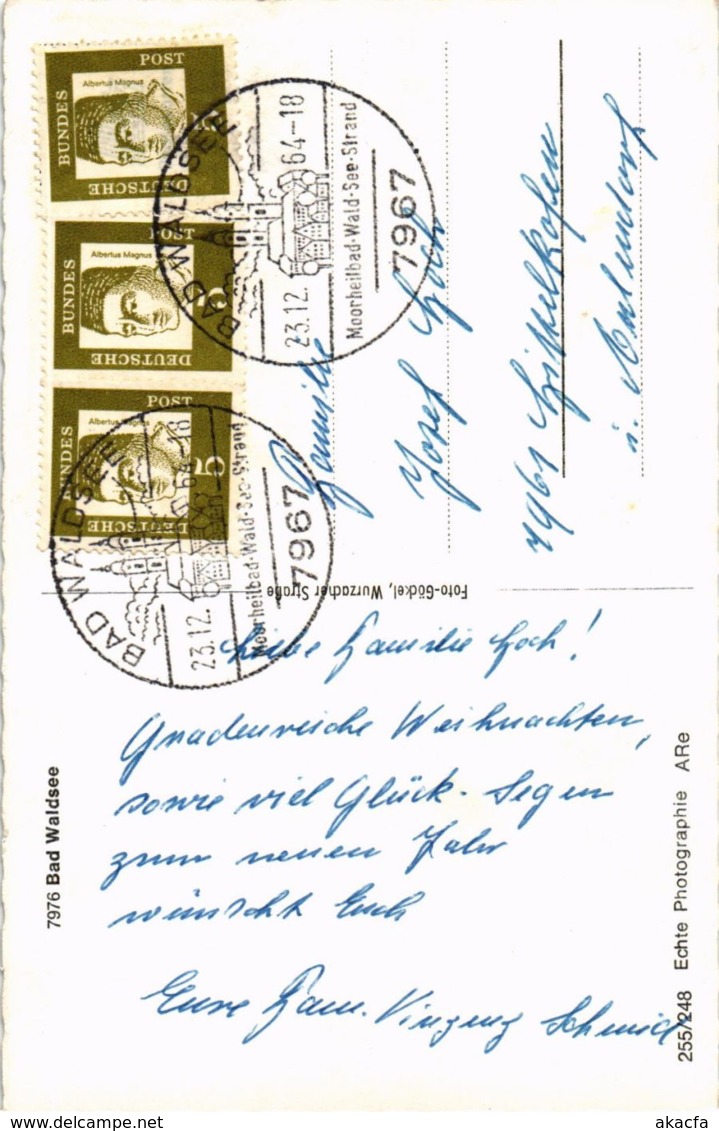 Albertus Magnus
DEUTSCHE
BUNDES
POST
5
Albertus Magnus
DEUTSCHE
BUNDES
POST
5
Albertus Magnus
DEUTSCHE
BUNDES
POST
5
BAD WALDSEE
23.12. 64-18
Moorheilbad-Wald-See-Strand
7967
BAD WALDSEE
23.12. 64-18
Moorheilbad-Wald-See-Strand
7967
Familie
Josef Hoch
7961
i.
Foto-Göckel, Wurzacher Straße
Liebe Familie Hoch!
Gnadenreiche Weihnachten,
sowie viel Glück. Segen
zum neuen Jahr
wünscht Euch
Eure Fam. Vinzenz Schmid
7976 Bad Waldsee
255/248 Echte Photographie ARe
akacfa
delcampe.net